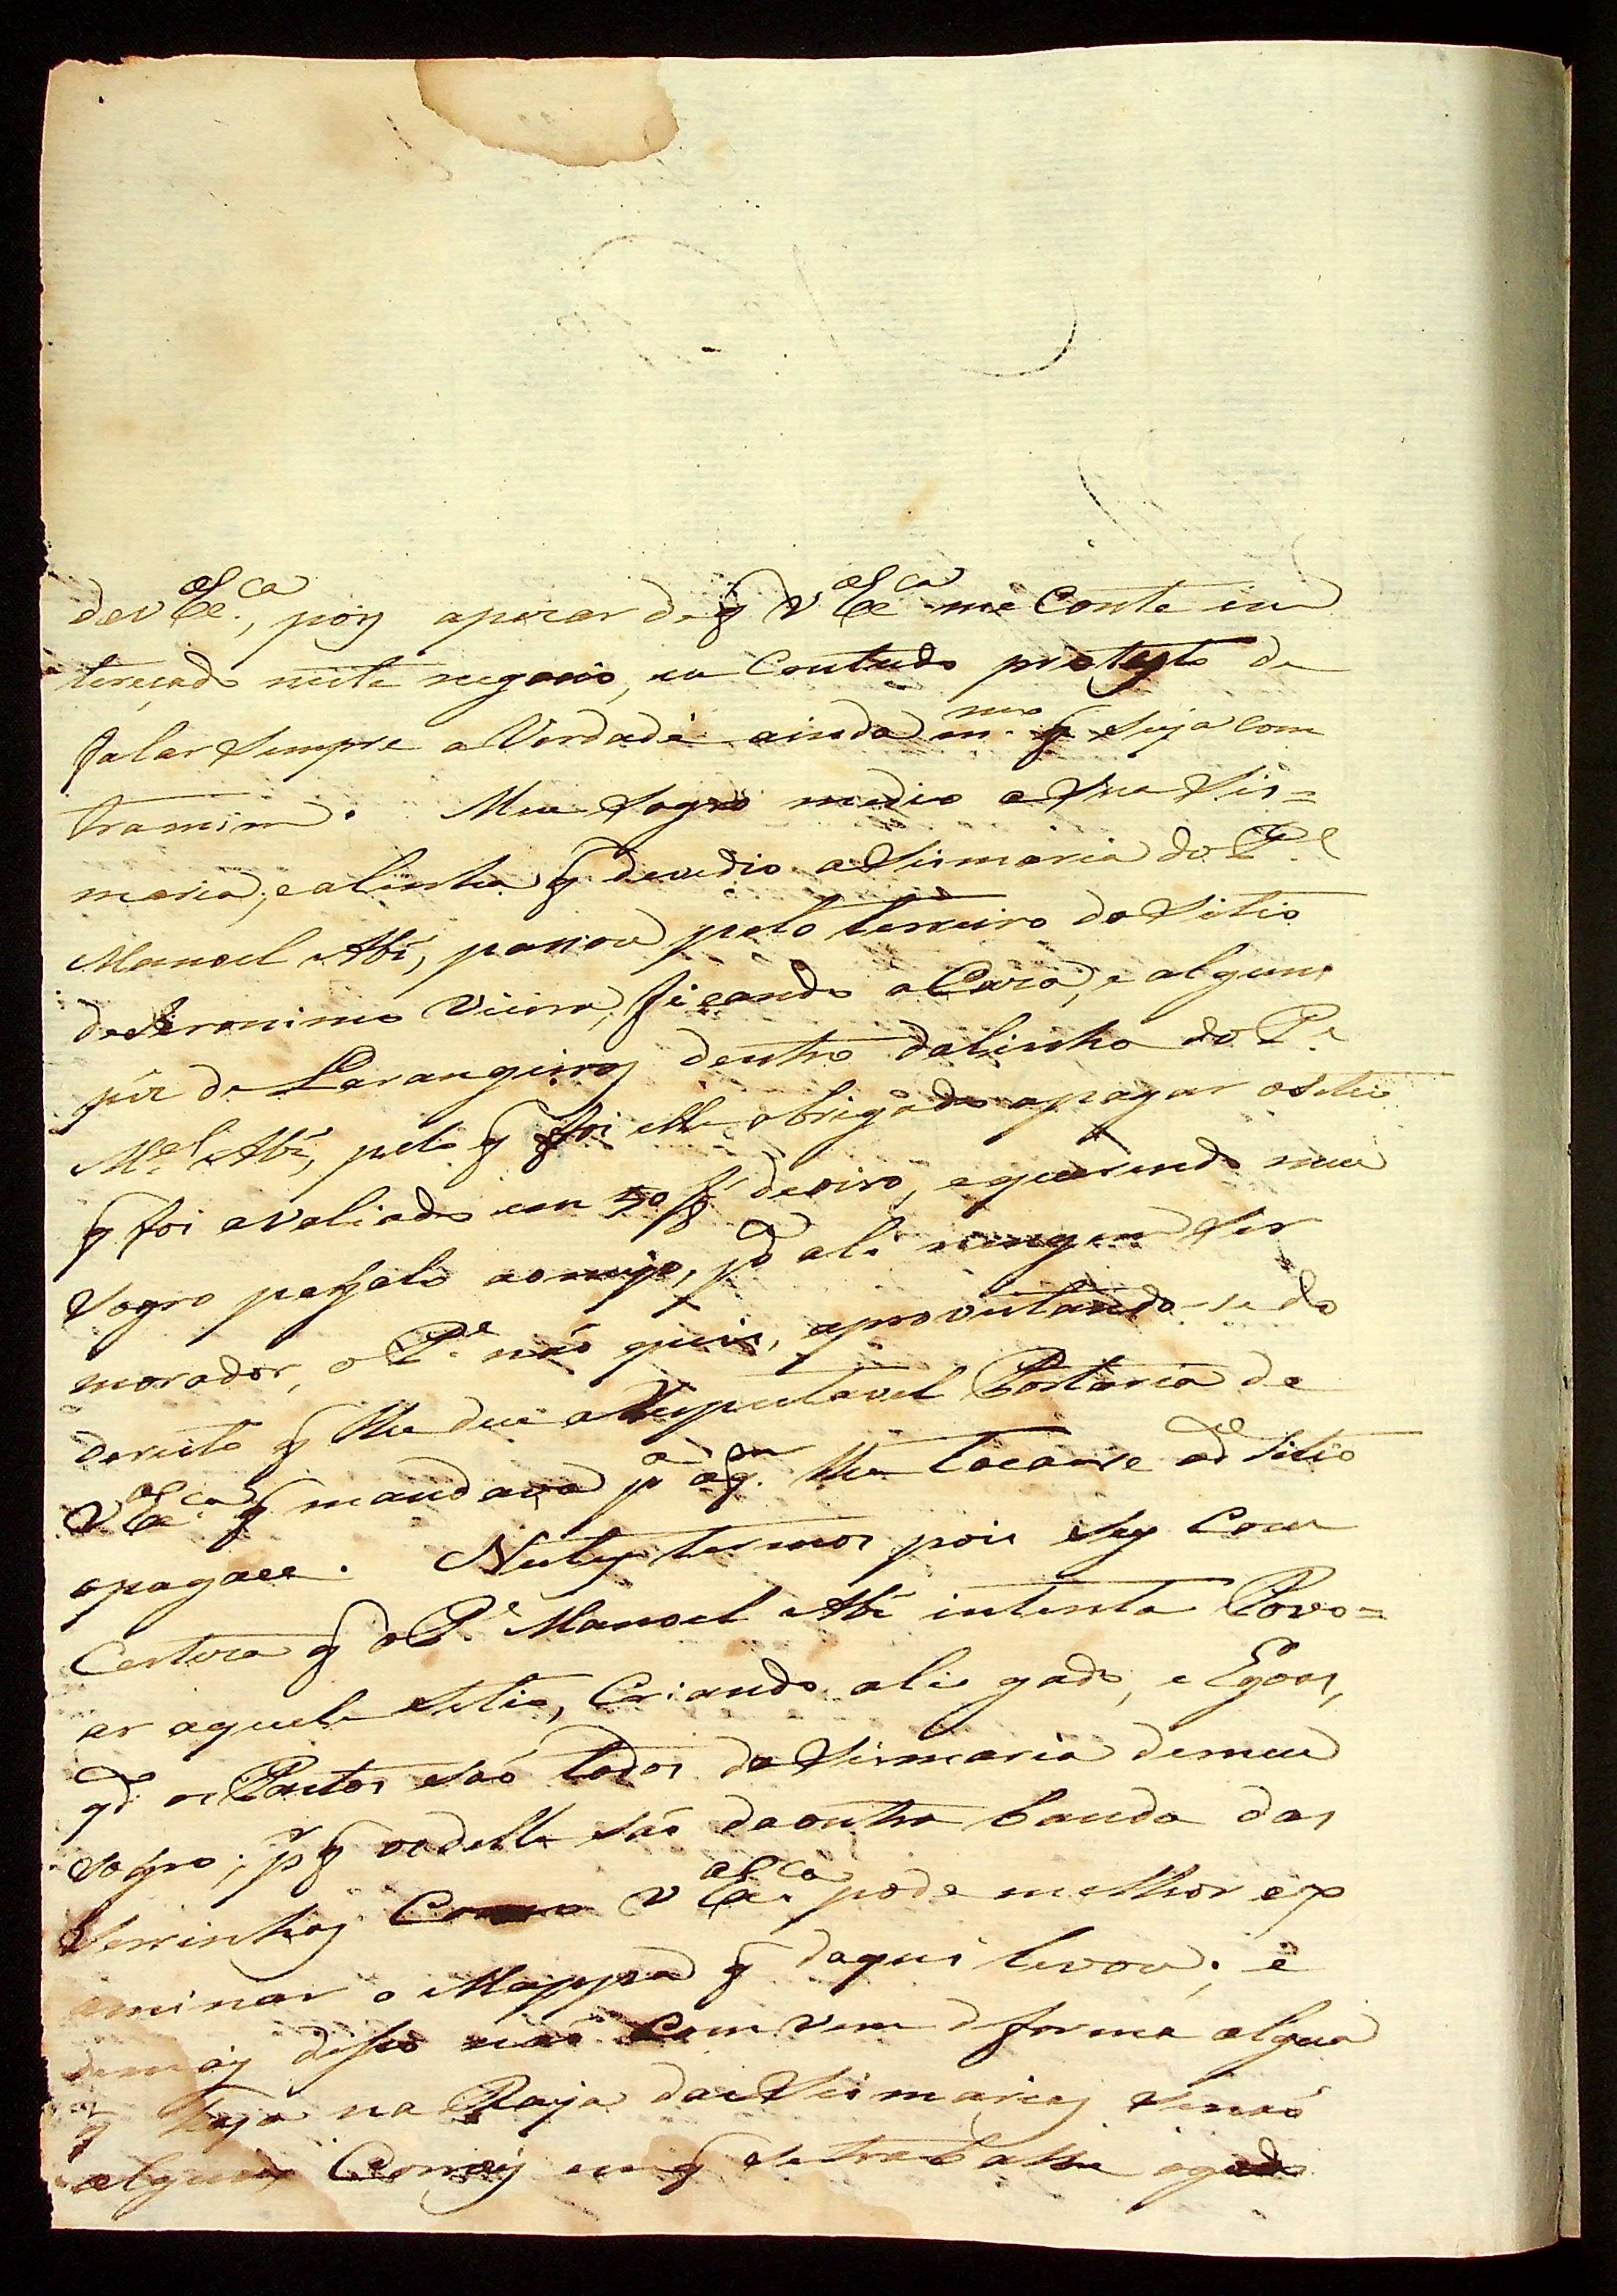 de V Exca., pois apezar de q V Exca me Conte in
tereçado neste negocio, eu Contudo protesto de
falar Sempre a Verdade ainda mmo. q Seja com
tramim. Meu Sogro medio a Sua Sis=
maria, e a linha q devedio a Sismaria do Pe.
Manoel Abê, passou pelo terreiro do Sitio
de Jeronimo Vieira, ficando a Caza, e alguns
péz de Larangeiras dentro da linha do Pe.
Mel. Abê, pelo q foi elle obrigado a pagar o sitio
q foi avaliado em 50 de oiro, e querendo meu
Sogro pagalo , pa. ali ningem ser
morador, o Pe. não quis, aproveitando-se do
dereito q lhe deu a Respeitavel Portaria de
V Exca. q mandava pa. a qm. lhe tocasse od Sitio
o pagace. Nestes termos pois sey Com
Certeza q o Pe. Manoel Abê intenta Povo=
ar aquele Sitio, Criando ali gado, e Egoas,
qdo. os Pastos são todos da Sismaria de meu
Sogro; pr. q os delle são da outra banda das
Serrinhas Como V Exca. pode melhor ex
aminar o Mappa q daqui levou; e
demais disso não Comvem d forma algua
q haja na Raya das Sismarias Senão
alguns Currais em q se trabalhe o gado